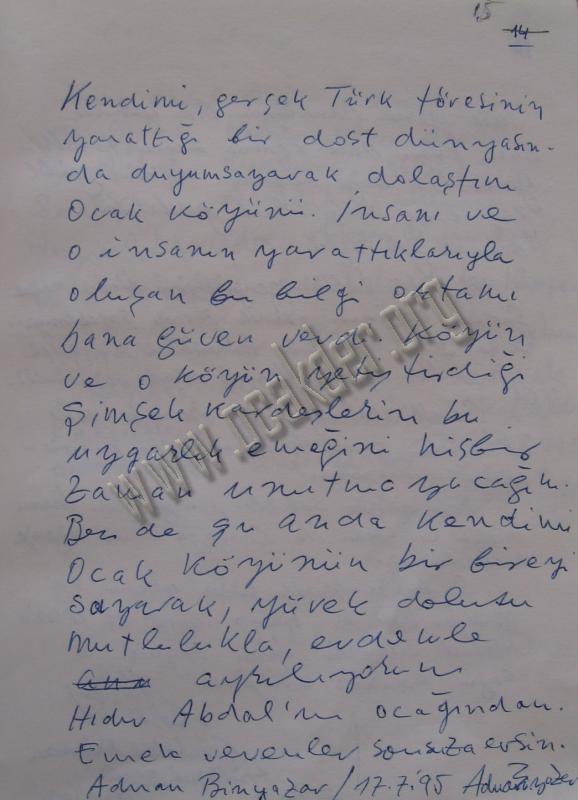 15
14
Kendimi, gerçek Türk töresinin
yarattığı bir dost dünyasın-
da duyumsayarak dolaştım
Ocak Köyünü. İnsanı ve
o insanın yarattıklarıyla
oluşan bu bilgi ortamı
bana güven verdi. Köyün
ve o köyün yetiştirdiği
Şimşek Kardeşlerin bu
uygarlık emeğini hiçbir
zaman unutmayacağım.
Ben de şu anda kendimi
Ocak Köyünün bir bireyi
sayarak, yürek dolusu
mutlulukla, erdemle
ayrılıyorum
Hıdır Abdal'ın ocağından.
Emek verenler sonsuza ersin.
Adnan Binyazar / 17.7.'95 Adnan Binyazar
www.ocakder.org